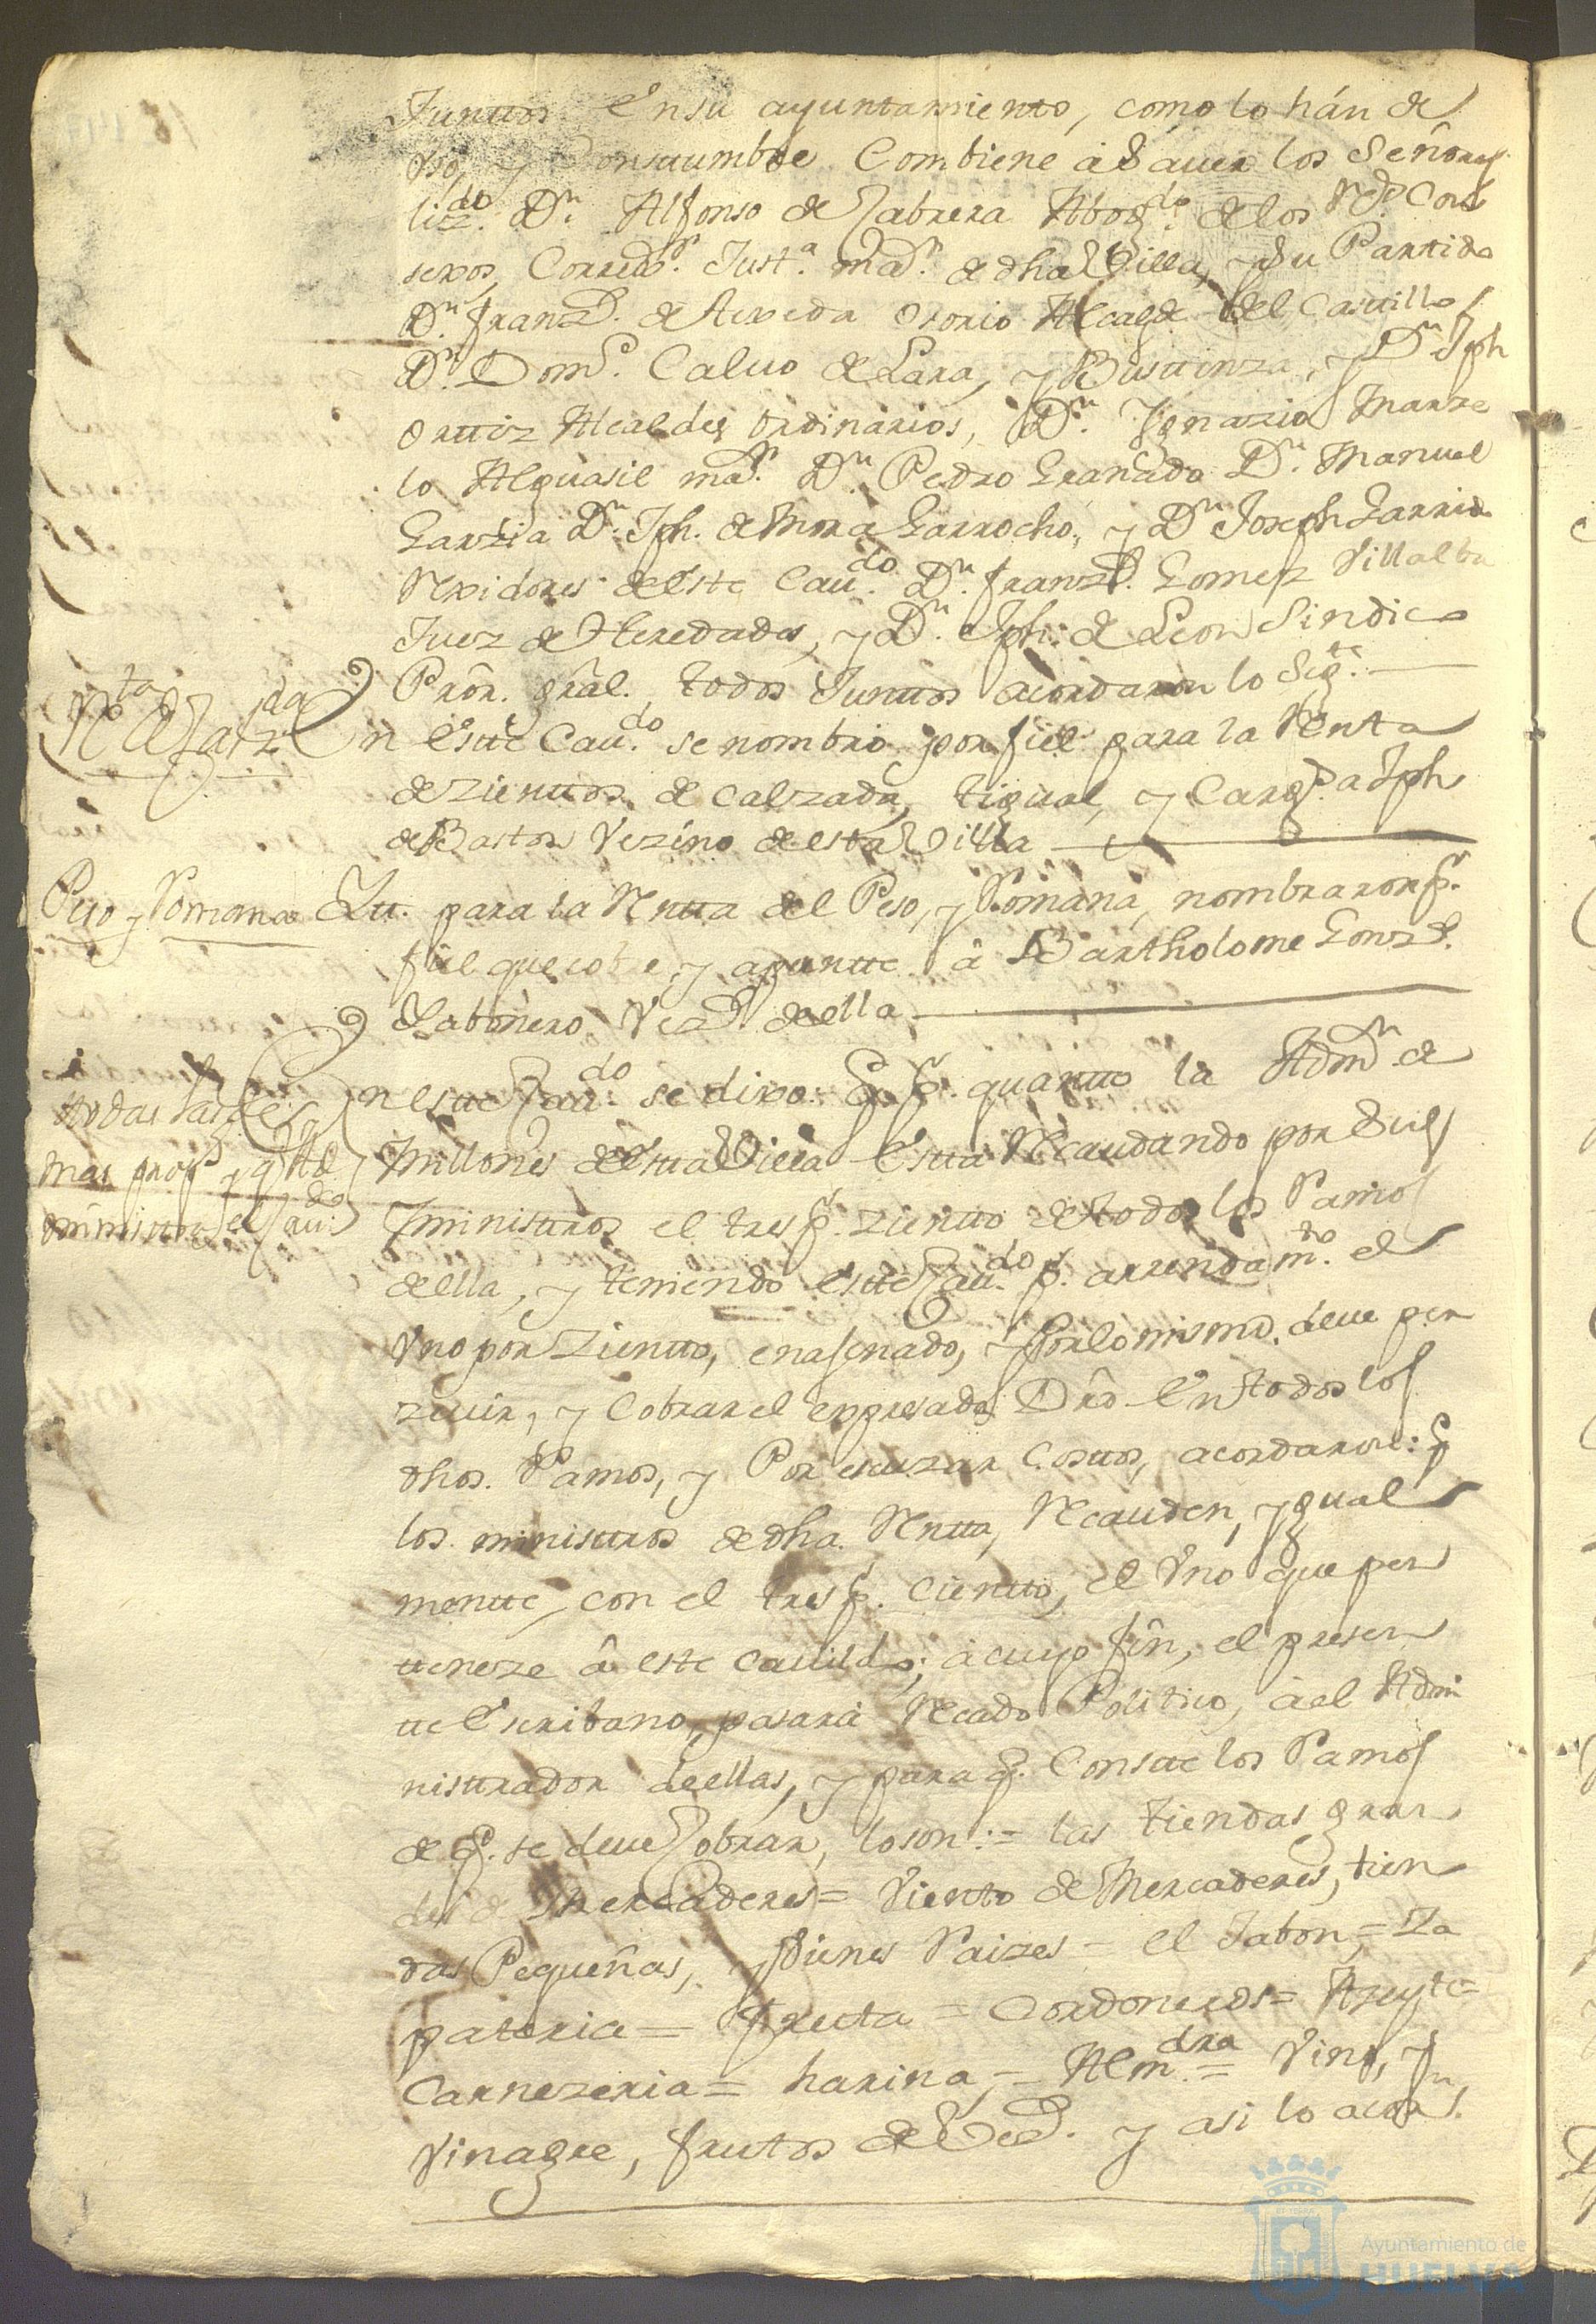 Juntos en su ayuntamiento, como lo hán de
Vso, y Constumbre Combiene â Sauer los Señores
lizdo. Dn. Alfonso de Cabrera Abogdo. de los Rs. Con
sexos, Correxor. Justa. mar. de dha Villa, y su Partido
Dn. Franzco. de Azeveda Osorio Alcayde del Castillo,
Dn. Domgo. Caluo de Lara, y Bustinza, y Dn. Jph
Ortiz Alcaldes ordinarios, Dn. Ygnazio Marze
lo Alguasil mar. Dn. Pedro Granado Dn. Manuel
Garzia Dn. Jph. de Mora Garrocho, y Dn. Joseph Garrido
Rexidores de este Caudo. Dn. Franzco. Gomez Villalba
Juez de Heredades, y Dn. Jph. de Leon Sindico
Prôr. grâl. todos Juntos acordaron lo Sigte.
Rta de Calzda
En este Caudo. se nombrio por fiel para la Renta
de Zientos de Calzada, y Cargo. a Jph
de Bastos Vezino de esta Villa
Peso y Romana
Yt. para la Rentta del Peso, y Romana, nombraron pr.
fiel que cobre, y apuntte â Bartholome Gonzs.
Xabonero Vezo. de ella
todas las
mas
ministra el Caudo.
En estte Caudo. se dixo: Q. pr. quantto la Admn. de
millones de estta Villa estta Recaudando por sus
ministtros el tres pr. zientto de todos los Ramos
de ella, y teniendo estte Caudo. pr. arrendamto. el
Vno por Zientto, enajenado, y Por lo mismo deue per
zeuir, y Cobrar el expresado Drô en todos los
dhos. Ramos, y Por escuzar Costtos, acordaron: q
los ministtros de dha. Rentta, Recauden, ygual
mentte, con el tres pr. Cientto, el Vno que per
teneze â este Cauildo; â cuyo fin, el presen
te Escribano, pasarâ Recado Politico, â el Admi
nistrador de ellas, y para q. Conste los Ramos
de q. se deue Cobrar, loson:= las tiendas gran
des de Mercaderes= Viento de Mercaderes, tien
das Pequeñas, y Vienes Raizes = el Jabon,= Za
pateria= fruta = Cordoneros= Azeyte=
Carnezeria= harina,= Almdra= Vino, y
Vinagre, frutos de y asi lo acordn.
Ayuntamiento de
HUELVA